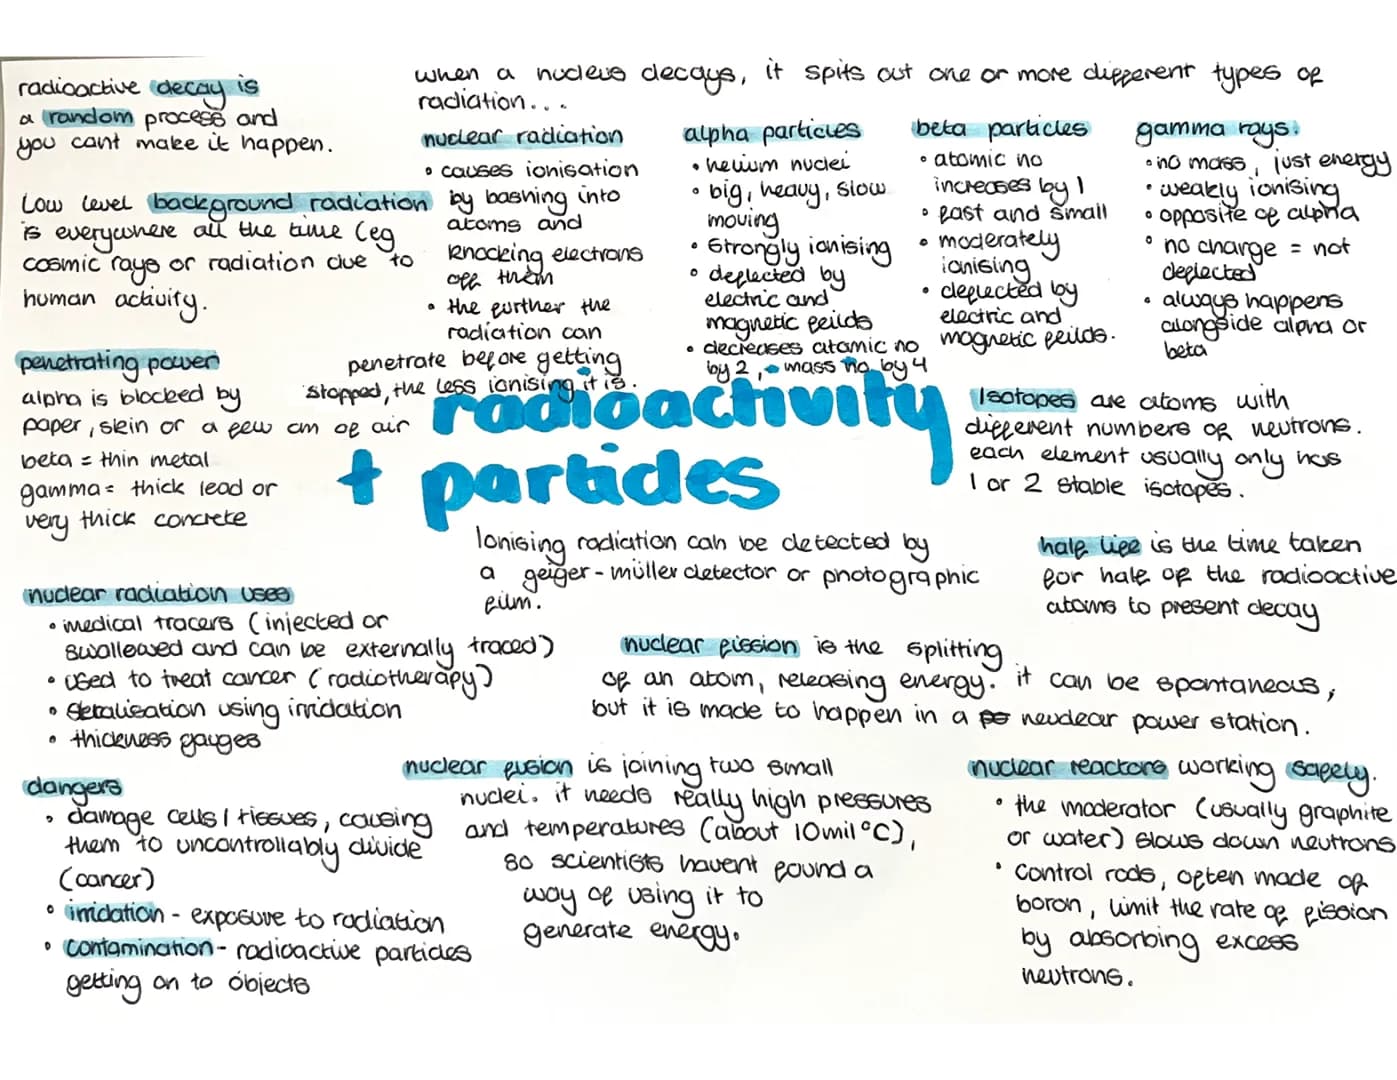 radioactive decay is
a random process and
you cant make it happen.
Low level background radiation
is everywhere all the time (eg
cosmic rays or radiation due to
human activity.
penetrating power
alpha is blocked by
paper, skin or a few cm of air
beta = thin metal
gamma = thick lead or
very thick concrete
when a nucleus decays, it spits out one or more different types of
radiation...
nuclear radiation
• causes ionisation
by bashing into
atoms and
knocking electrons
off them
• the further the
radiation can
penetrate before getting
stopped, the less ionising it is.
alpha particles
• helium nuclei
• big, heavy, slow
moving
• strongly ionising
• deflected by
electric and
magnetic feilds
• decreases atomic no
by 2, • mass no by 4
beta particles
• atomic no
increases by 1
• fast and small
• moderately
ionising
• deflected by
electric and
magnetic feilds.
gamma rays.
• no mass, just energy
• weakly ionising
• opposite of alpha
• no charge = not
deflected
• always happens
alongside alpha or
beta
radioactivity
+ particles
Isotopes are atoms with
different numbers of neutrons.
each element usually only has
1 or 2 stable isotopes.
Ionising radiation can be detected by
a geiger-müller detector or photographic
film.
half life is the time taken
for half of the radioactive
atoms to present decay
nuclear radiation uses
• medical tracers (injected or
swallowed and can be externally traced)
• used to treat cancer (radiotherapy)
• steralisation using irridation
• thickness gauges
nuclear fission is the splitting
of an atom, releasing energy. it can be spontaneous,
but it is made to happen in a neudear power station.
dangers
• damage cells / tissues, causing
them to uncontrollably divide
(cancer)
• irridation - exposure to radiation
• contamination - radioactive particles
getting on to objects
nuclear fusion is joining two small
nuclei. it needs really high pressures
and temperatures (about 10mil°C),
so scientists havent found a
way of using it to
generate energy.
nuclear reactors working safely.
• the moderator (usually graphite
or water) slows down neutrons
• control rods, often made of
boron, limit the rate of fission
by absorbing excess
neutrons.